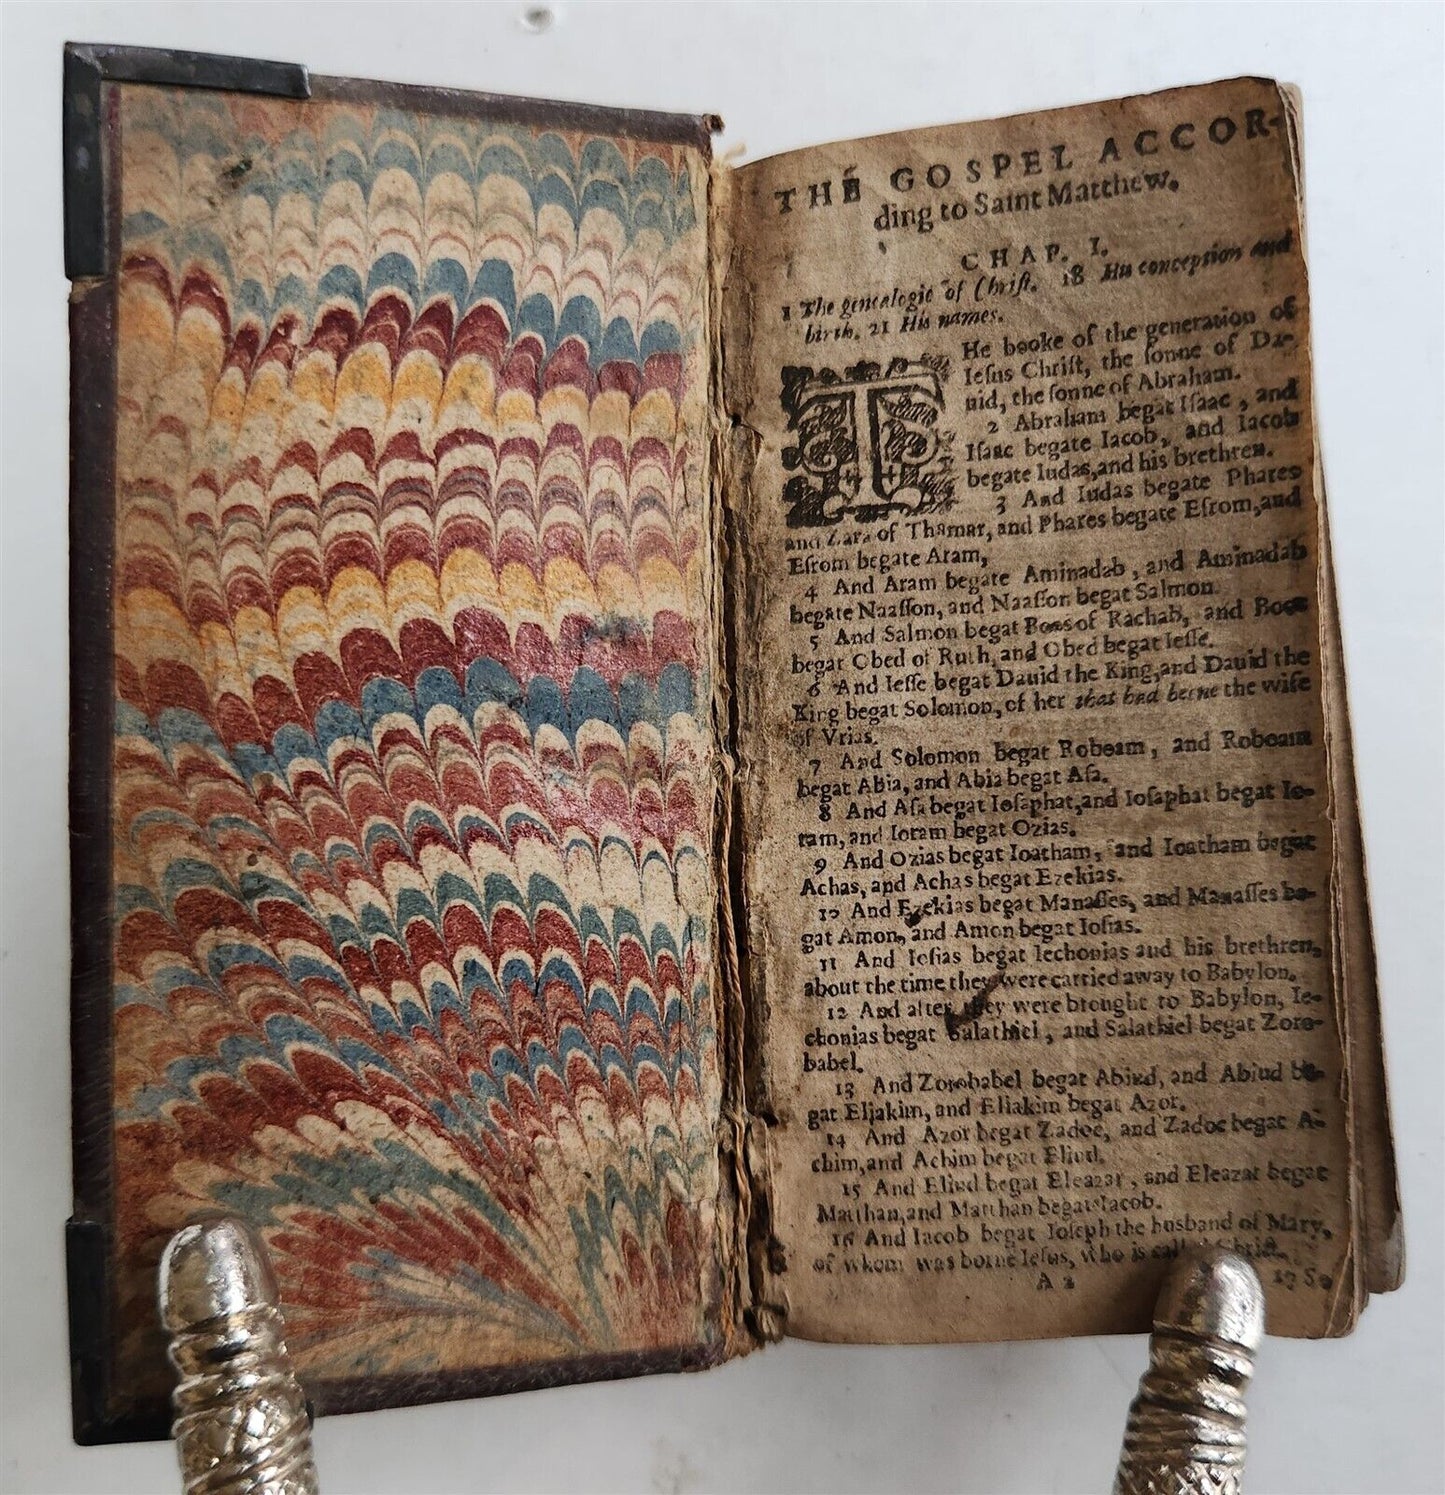 THE GOSPEL ACCOR-
ding to Saint Matthew.
CHAP. I.
1 The genealogie of Chriſt. 18 His conception and
birth. 21 His names.
THe booke of the generation of
Ieſus Chriſt, the ſonne of Da-
uid, the ſonne of Abraham.
2 Abraham begat Iſaac, and
Iſaac begate Iacob, and Iacob
begate Iudas, and his brethren.
3 And Iudas begate Phares
and Zara of Thamar, and Phares begate Eſrom, and
Eſrom begate Aram,
4 And Aram begate Aminadab, and Aminadab
begate Naaſſon, and Naaſſon begat Salmon.
5 And Salmon begat Boos of Rachab, and Boos
begat Obed of Ruth, and Obed begat Ieſſe.
6 And Ieſſe begat Dauid the King, and Dauid the
King begat Solomon, of her that had beene the wife
of Vrias.
7 And Solomon begat Roboam, and Roboam
begat Abia, and Abia begat Aſa.
8 And Aſa begat Ioſaphat, and Ioſaphat begat Io-
ram, and Ioram begat Ozias.
9 And Ozias begat Ioatham, and Ioatham begat
Achas, and Achas begat Ezekias.
10 And Ezekias begat Manaſſes, and Manaſſes be-
gat Amon, and Amon begat Ioſias.
11 And Ioſias begat Iechonias and his brethren,
about the time they were carried away to Babylon.
12 And after they were brought to Babylon, Ie-
chonias begat Salathiel, and Salathiel begat Zoro-
babel.
13 And Zorobabel begat Abiud, and Abiud be-
gat Eliakim, and Eliakim begat Azor.
14 And Azor begat Zadoc, and Zadoc begat A-
chim, and Achim begat Eliud.
15 And Eliud begat Eleazar, and Eleazar begat
Matthan, and Matthan begat Iacob.
16 And Iacob begat Ioſeph the husband of Mary,
of whom was borne Ieſus, who is called Chriſt.
A 2 17 So